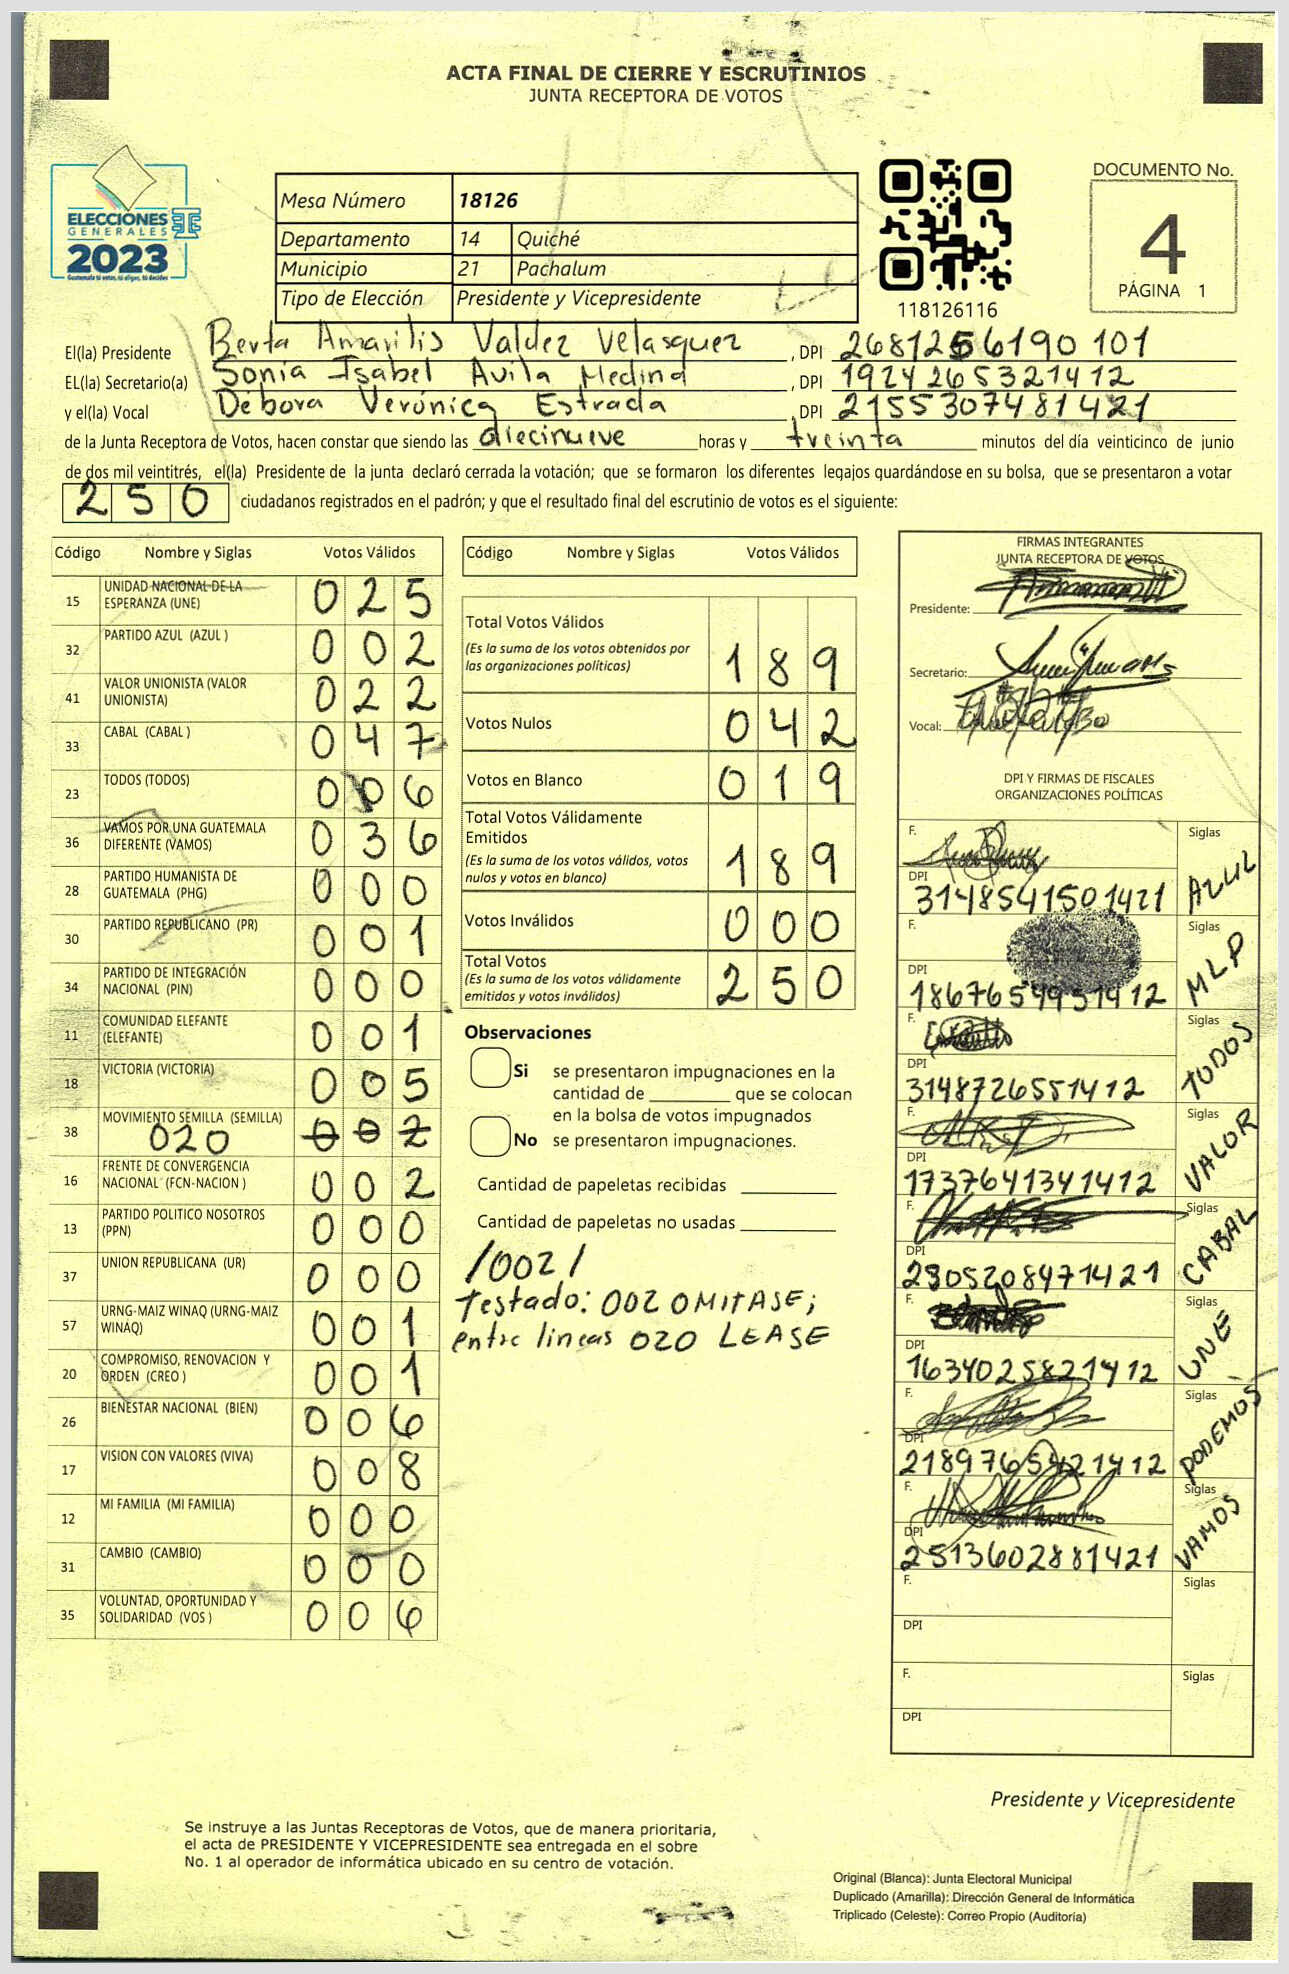 ACTA FINAL DE CIERRE Y ESCRUTINIOS
JUNTA RECEPTORA DE VOTOS
ELECCIONES
GENERALES
2023
Guatemala tú votas, tú eliges, tú decides
Mesa Número 18126
Departamento 14 Quiché
Municipio 21 Pachalum
Tipo de Elección Presidente y Vicepresidente
118126116
DOCUMENTO No.
4
PÁGINA 1
El(la) Presidente Berta Amarilis Valdez Velasquez , DPI 2681256190101
EL(la) Secretario(a) Sonia Isabel Avila Medina , DPI 1924265321412
y el(la) Vocal Débora Verónica Estrada , DPI 2155307481421
de la Junta Receptora de Votos, hacen constar que siendo las diecinueve horas y treinta minutos del día veinticinco de junio
de dos mil veintitrés, el(la) Presidente de la junta declaró cerrada la votación; que se formaron los diferentes legajos guardándose en su bolsa, que se presentaron a votar
250 ciudadanos registrados en el padrón; y que el resultado final del escrutinio de votos es el siguiente:
Código Nombre y Siglas Votos Válidos
15 UNIDAD NACIONAL DE LA ESPERANZA (UNE) 025
32 PARTIDO AZUL (AZUL ) 002
41 VALOR UNIONISTA (VALOR UNIONISTA) 022
33 CABAL (CABAL ) 047
23 TODOS (TODOS) 006
36 VAMOS POR UNA GUATEMALA DIFERENTE (VAMOS) 036
28 PARTIDO HUMANISTA DE GUATEMALA (PHG) 000
30 PARTIDO REPUBLICANO (PR) 001
34 PARTIDO DE INTEGRACIÓN NACIONAL (PIN) 000
11 COMUNIDAD ELEFANTE (ELEFANTE) 001
18 VICTORIA (VICTORIA) 005
38 MOVIMIENTO SEMILLA (SEMILLA) 020 002
16 FRENTE DE CONVERGENCIA NACIONAL (FCN-NACION ) 002
13 PARTIDO POLITICO NOSOTROS (PPN) 000
37 UNION REPUBLICANA (UR) 000
57 URNG-MAIZ WINAQ (URNG-MAIZ WINAQ) 001
20 COMPROMISO, RENOVACION Y ORDEN (CREO ) 001
26 BIENESTAR NACIONAL (BIEN) 006
17 VISION CON VALORES (VIVA) 008
12 MI FAMILIA (MI FAMILIA) 000
31 CAMBIO (CAMBIO) 000
35 VOLUNTAD, OPORTUNIDAD Y SOLIDARIDAD (VOS ) 006
Código Nombre y Siglas Votos Válidos
Total Votos Válidos
(Es la suma de los votos obtenidos por
las organizaciones políticas) 189
Votos Nulos 042
Votos en Blanco 019
Total Votos Válidamente
Emitidos
(Es la suma de los votos válidos, votos
nulos y votos en blanco) 189
Votos Inválidos 000
Total Votos
(Es la suma de los votos válidamente
emitidos y votos inválidos) 250
Observaciones
Si se presentaron impugnaciones en la
cantidad de ________ que se colocan
en la bolsa de votos impugnados
No se presentaron impugnaciones.
Cantidad de papeletas recibidas
Cantidad de papeletas no usadas
/002/
Testado: 002 OMITASE;
entre lineas 020 LEASE
FIRMAS INTEGRANTES
JUNTA RECEPTORA DE VOTOS
Presidente:
Secretario:
Vocal:
DPI Y FIRMAS DE FISCALES
ORGANIZACIONES POLÍTICAS
F. Siglas AZUL
DPI 3148541501421
F. Siglas MLP
DPI 1867654951412
F. Siglas TODOS
DPI 3148726551412
F. Siglas VALOR
DPI 1737641341412
F. Siglas CABAL
DPI 2305208471421
F. Siglas UNE
DPI 1634025821412
F. Siglas PODEMOS
DPI 2189765421412
F. Siglas VAMOS
DPI 2513602881421
F. Siglas
DPI
F. Siglas
DPI
Presidente y Vicepresidente
Se instruye a las Juntas Receptoras de Votos, que de manera prioritaria,
el acta de PRESIDENTE Y VICEPRESIDENTE sea entregada en el sobre
No. 1 al operador de informática ubicado en su centro de votación.
Original (Blanca): Junta Electoral Municipal
Duplicado (Amarilla): Dirección General de Informática
Triplicado (Celeste): Correo Propio (Auditoría)